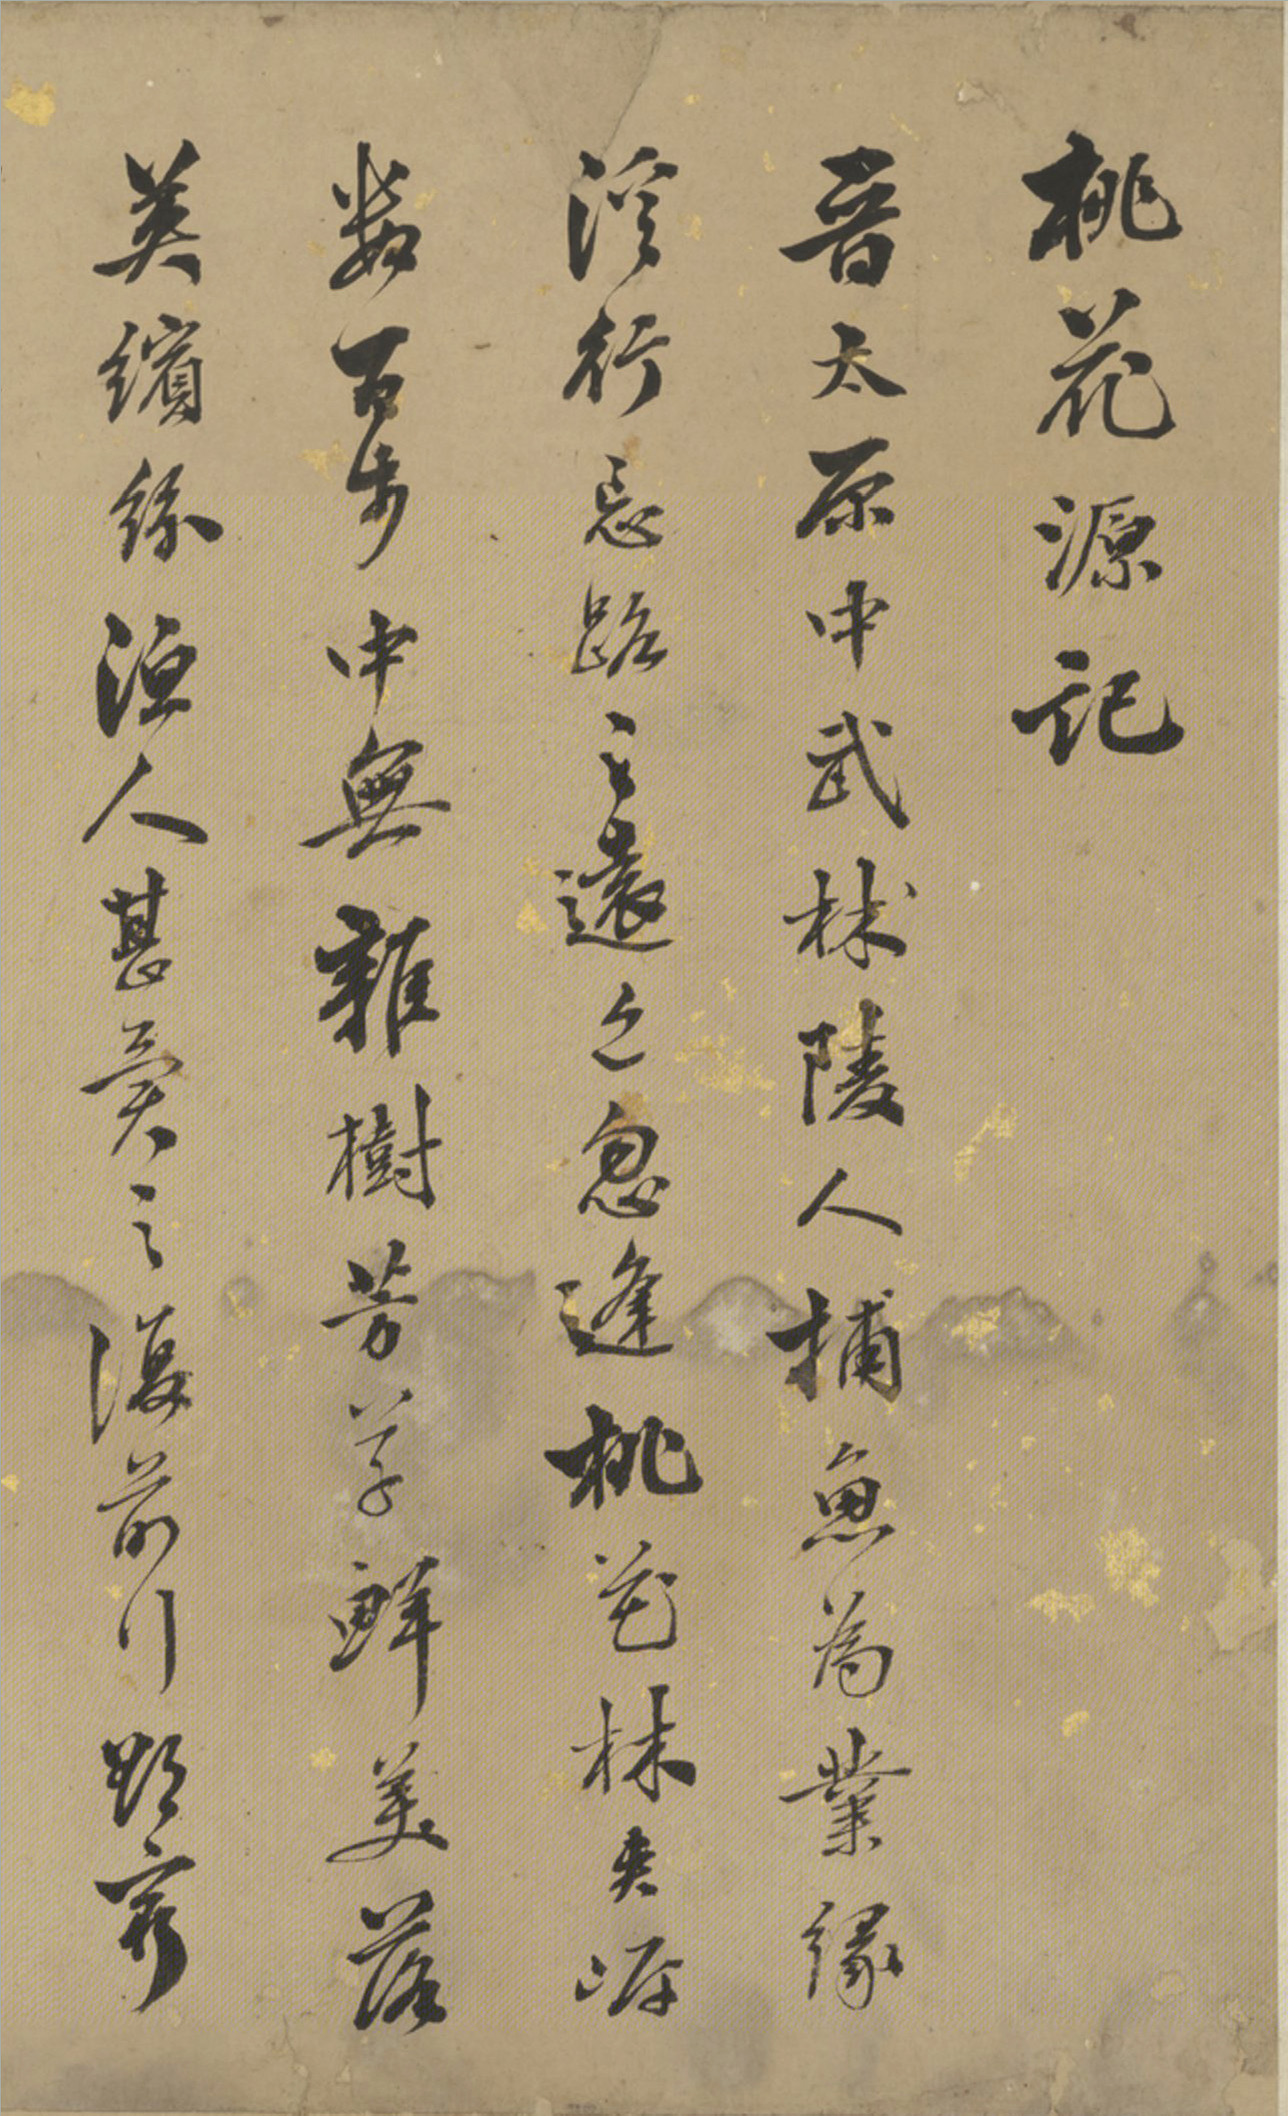 桃花源記
晉太原中武林陵人捕魚為業緣
溪行忘路之遠近忽逢桃花林夾岸
數百步中無雜樹芳草鮮美落
英繽紛漁人甚異之復前行欲窮